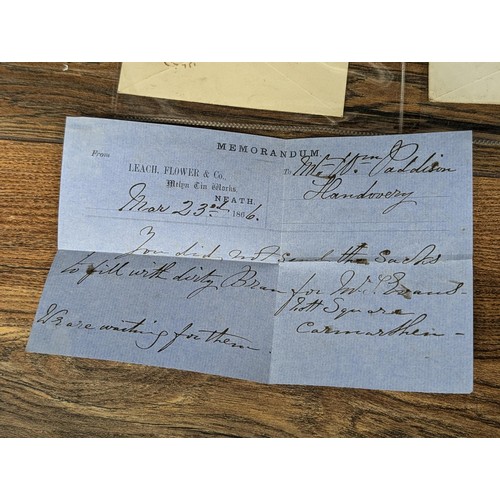 MEMORANDUM.
From
To Mr Wm Paddison
LEACH, FLOWER & Co.
Llandovery
Melyn Tin Works.
NEATH.
Mar 23rd 1866.
You did not send the sacks
to fill with dirty Bran for Mr Evans
Square
Carmarthen
We are waiting for them.